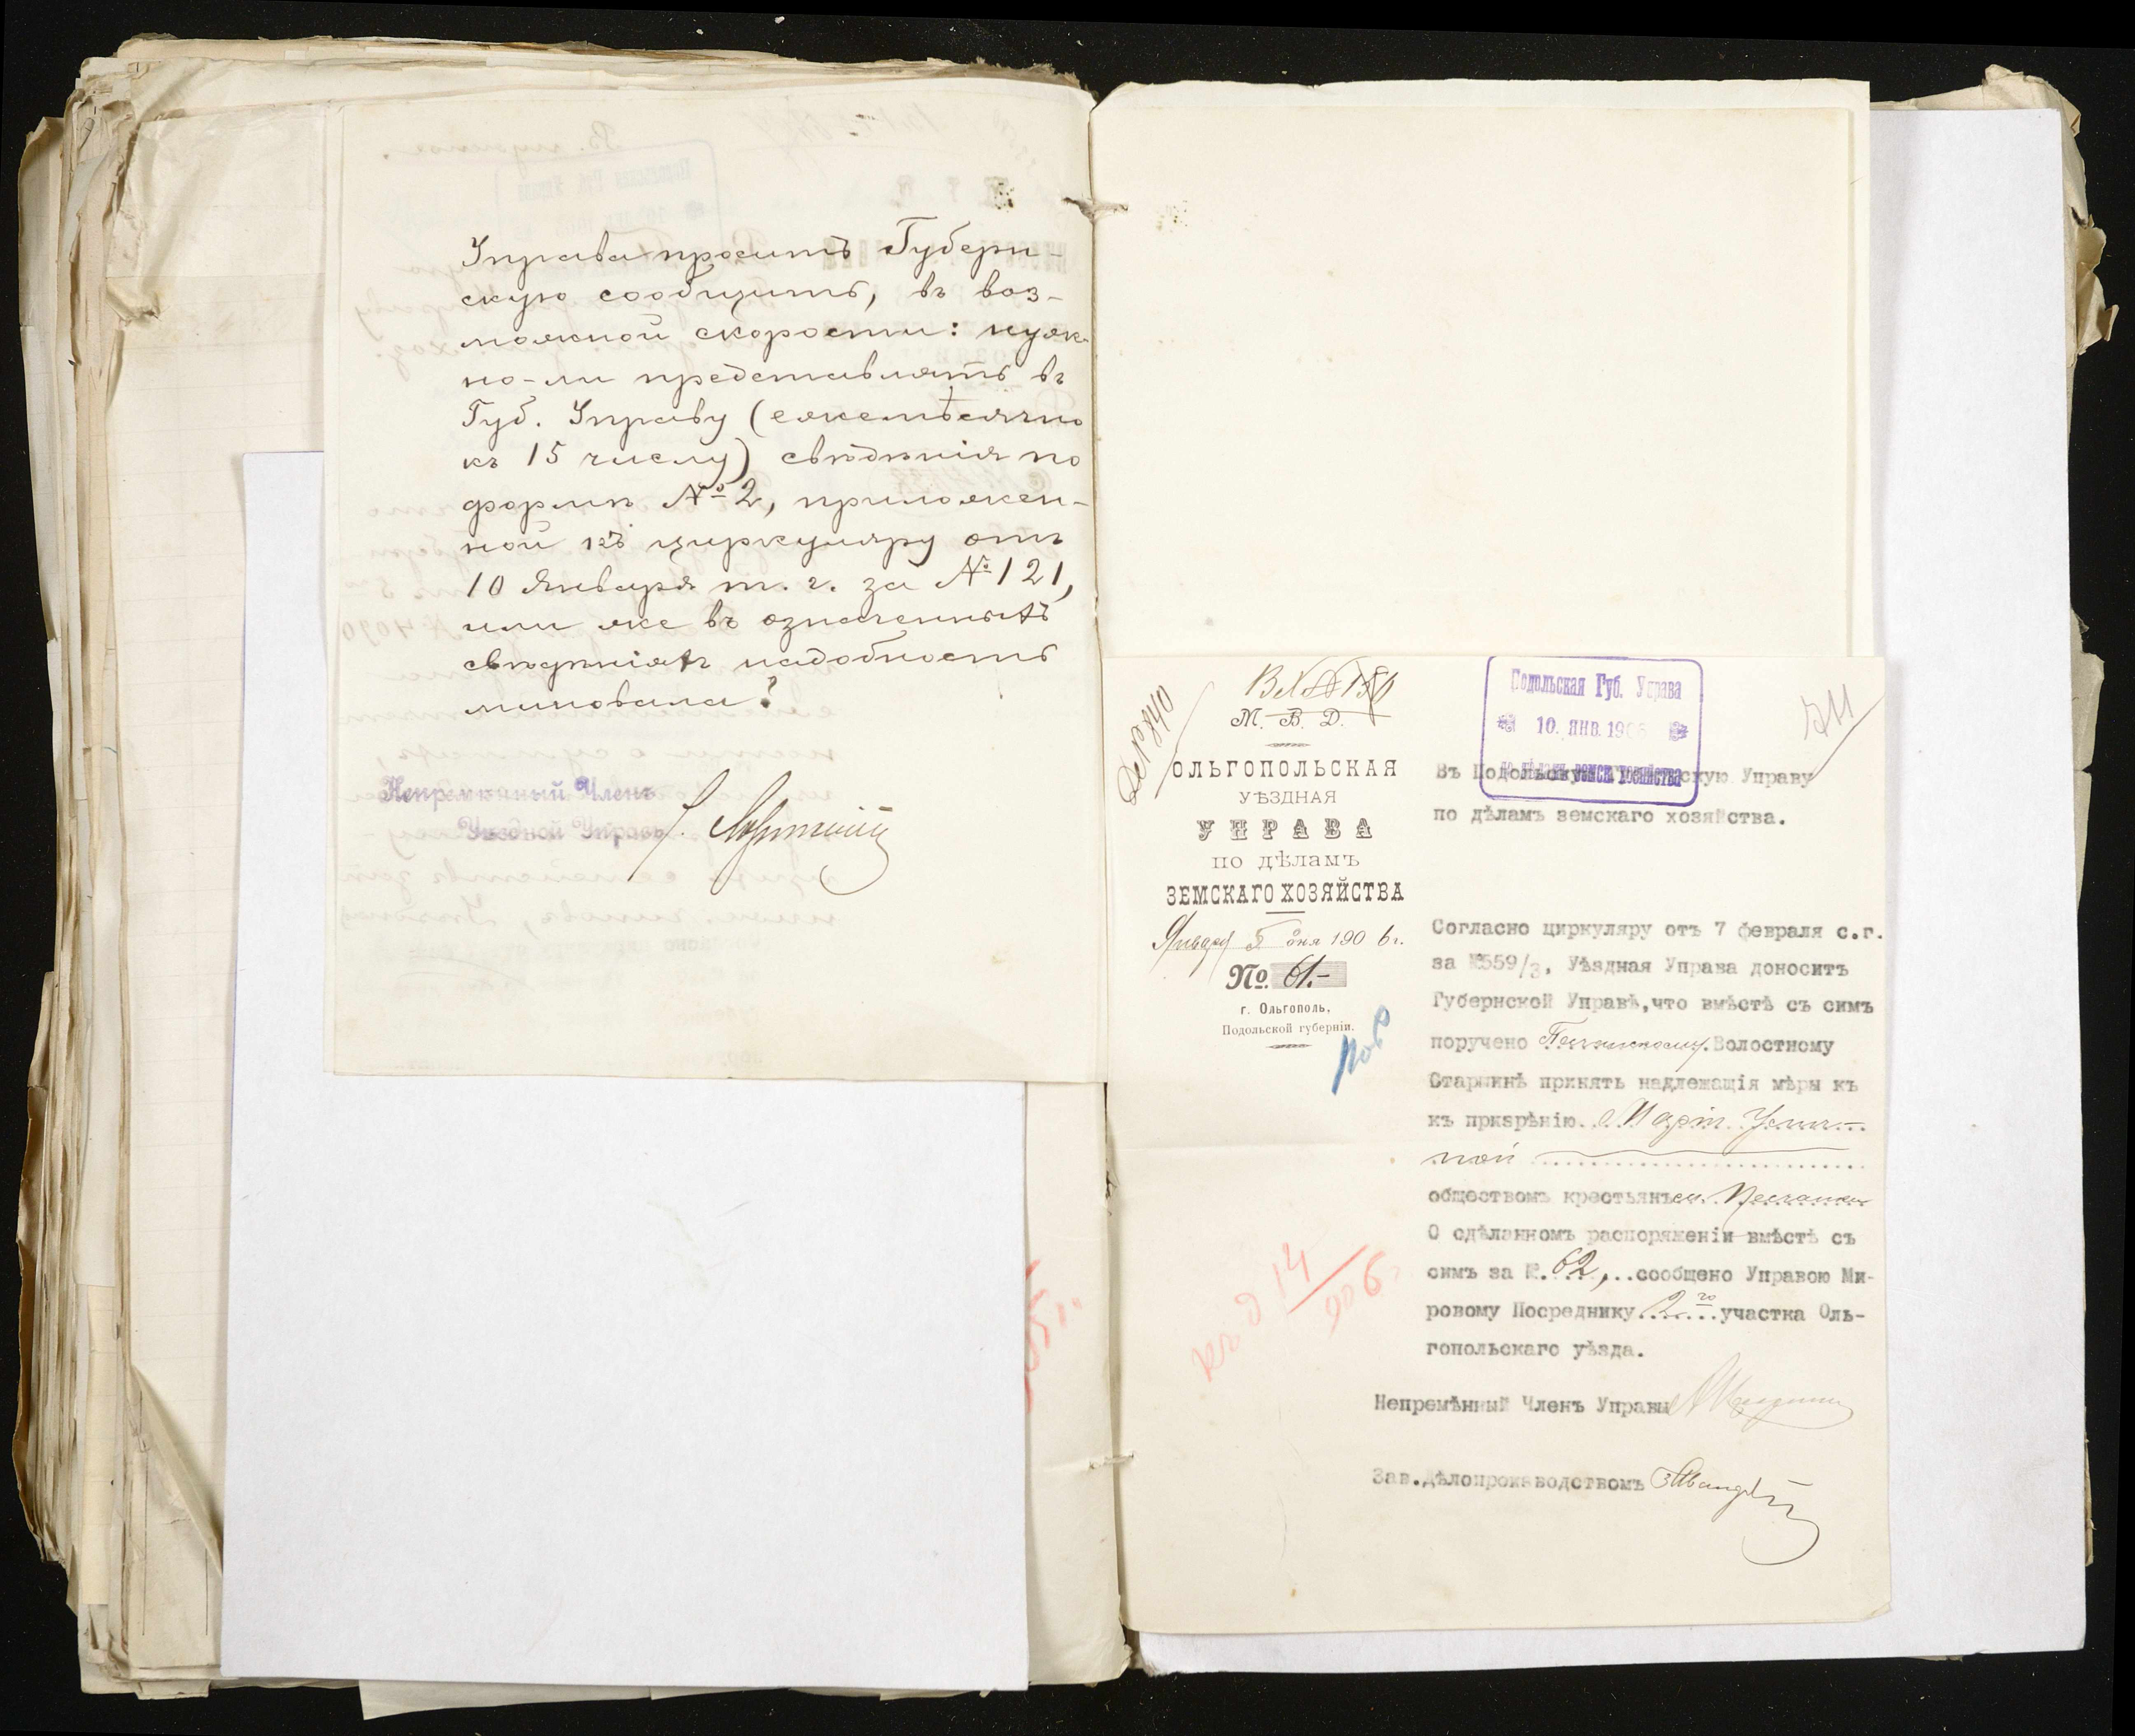 Управа проситъ Губерн-
скую сообщить, въ воз-
можной скорости: нуж-
но-ли представлять въ
Губ. Управу (ежемѣсячно
къ 15 числу) свѣдѣнія по
формѣ № 2, приложен-
ной къ циркуляру отъ
10 Января т. г. за № 121,
или же въ означенныхъ
свѣдѣніяхъ надобность
миновала?
Непремѣнный Членъ
Уѣздной Управы
М. В. Д.
ОЛЬГОПОЛЬСКАЯ
УѢЗДНАЯ
УПРАВА
ПО ДѢЛАМЪ
ЗЕМСКАГО ХОЗЯЙСТВА
Января 5 дня 1906 г.
№. 61.-
г. Ольгополь,
Подольской губерніи.
Подольская Губ. Управа
10. ЯНВ. 1906
по дѣламъ земск. хозяйства
711
Въ Подольскую Губернскую Управу
по дѣламъ земскаго хозяйства.
Согласно циркуляру отъ 7 февраля с.г.
за №559/3, Уѣздная Управа доноситъ
Губернской Управѣ, что вмѣстѣ съ симъ
поручено Волостному
Старшинѣ принять надлежащія мѣры къ
къ призрѣнію
обществомъ крестьянъ с. Песчанки
О сдѣланномъ распоряженіи вмѣстѣ съ
симъ за №. 62, сообщено Управою Ми-
ровому Посреднику 2го участка Оль-
гопольскаго уѣзда.
къ д 14/906
Непремѣнный Членъ Управы
Зав. Дѣлопроизводствомъ